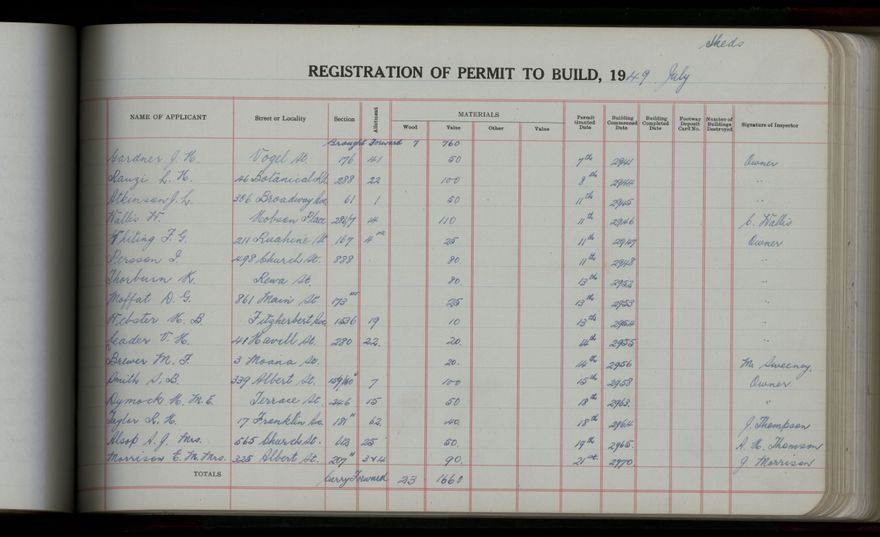 Sheds
REGISTRATION OF PERMIT TO BUILD, 1949 July
NAME OF APPLICANT Street or Locality Section Allotment MATERIALS Wood Value Other Value Permit Granted Date Building Commenced Date Building Completed Date Footway Deposit Card No. Number of Buildings Destroyed Signature of Inspector
Brought Forward 7 760
Gardner J. H. Vogel St. 176 41 50 7th 2941 Owner
Rauzi L. H. 46 Botanical Rd. 288 22 100 8th 2944 "
Atkinson J. L. 386 Broadway Ave 61 1 50 11th 2945 "
Wallis W. Hobson Place 14 110 11th 2946 C. Wallis
Whiting F. G. 211 Ruahine St 167 25 11th 2947 Owner
Persson I. 498 Church St. 888 80 11th 2948 "
Thorburn K. Rewa St. 80. 13th 2952 "
Moffat D. G. 861 Main St. 173 25 13th 2953 "
Webster H. B. Fitzherbert Ave 1536 19 10 13th 2954 "
Leader V. H. 41 Havell St. 280 22. 20. 14th 2955 "
Brewer M. F. 3 Moana St. 20. 14th 2956 Mr Sweeney.
Smith S. B. 339 Albert St. 7 100 15th 2958 Owner
Dymock H. M. E. Terrace St. 246 15 50 18th 2963. "
Taylor R. H. 17 Franklin Av. 181 62. 140. 18th 2964 J. Thompson
Alsop A. J. Mrs. 565 Church St. 25 50. 19th 2965. A. H. Thomson
Morrison E. M. Mrs. 325 Albert St. 207 3&4 90. 21st 2970. J. Morrison
TOTALS Carry Forward 23 1660